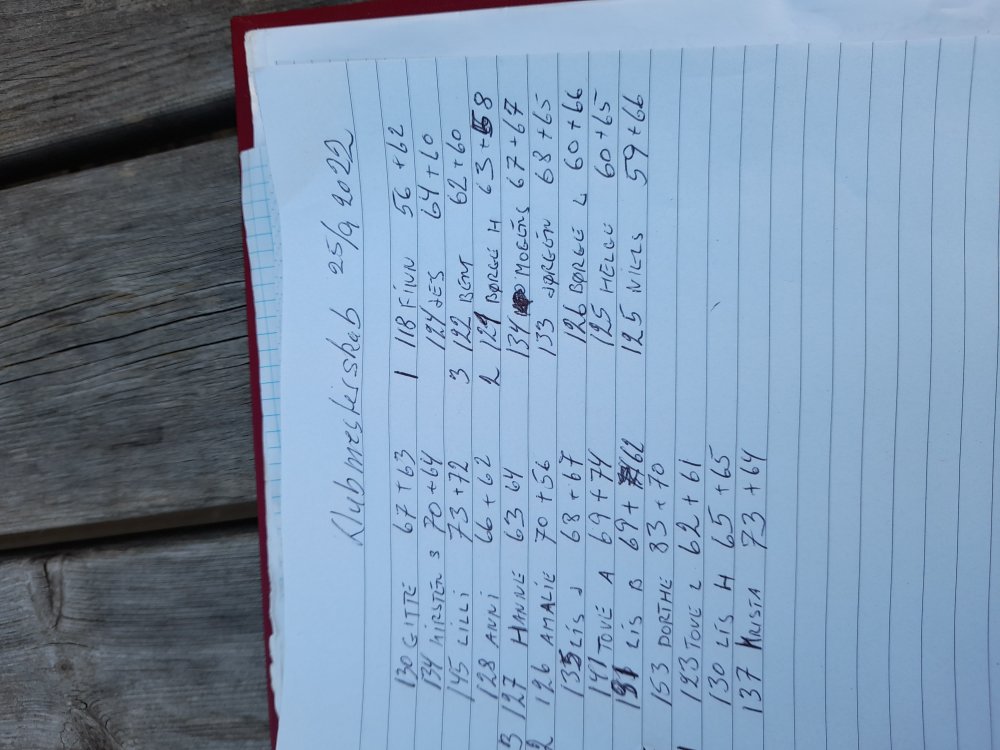 Klubmesterskab 25/9 2022
130 GITTE 67+63 1 118 FINN 56+62
134 KIRSTEN S 70+64 124 JES 64+60
145 LILLI 73+72 3 122 BENT 62+60
128 ANNI 66+62 2 121 BØRGE H 63+58
3 127 HANNE 63 64 134 MOGENS 67+67
2 126 AMALIE 70+56 133 JØRGEN 68+65
135 LIS J 68+67 126 BØRGE L 60+66
141 TOVE A 69+74 125 HELGE 60+65
131 LIS B 69+62 125 NIELS 59+66
153 DORTHE 83+70
1 123 TOVE L 62+61
130 LIS H 65+65
137 KRISTA 73+64